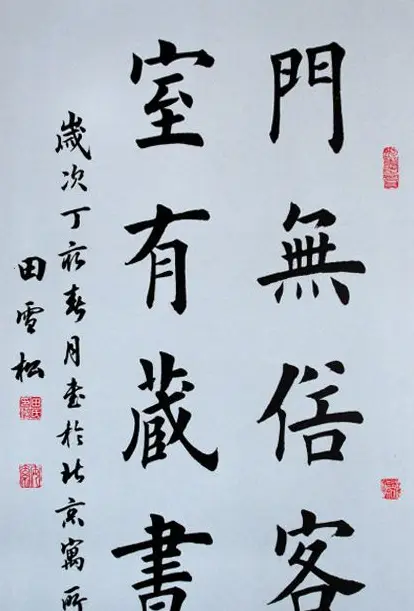 門無俗客
室有蔵書
歲次丁亥春月書於北京寓所
田雪松